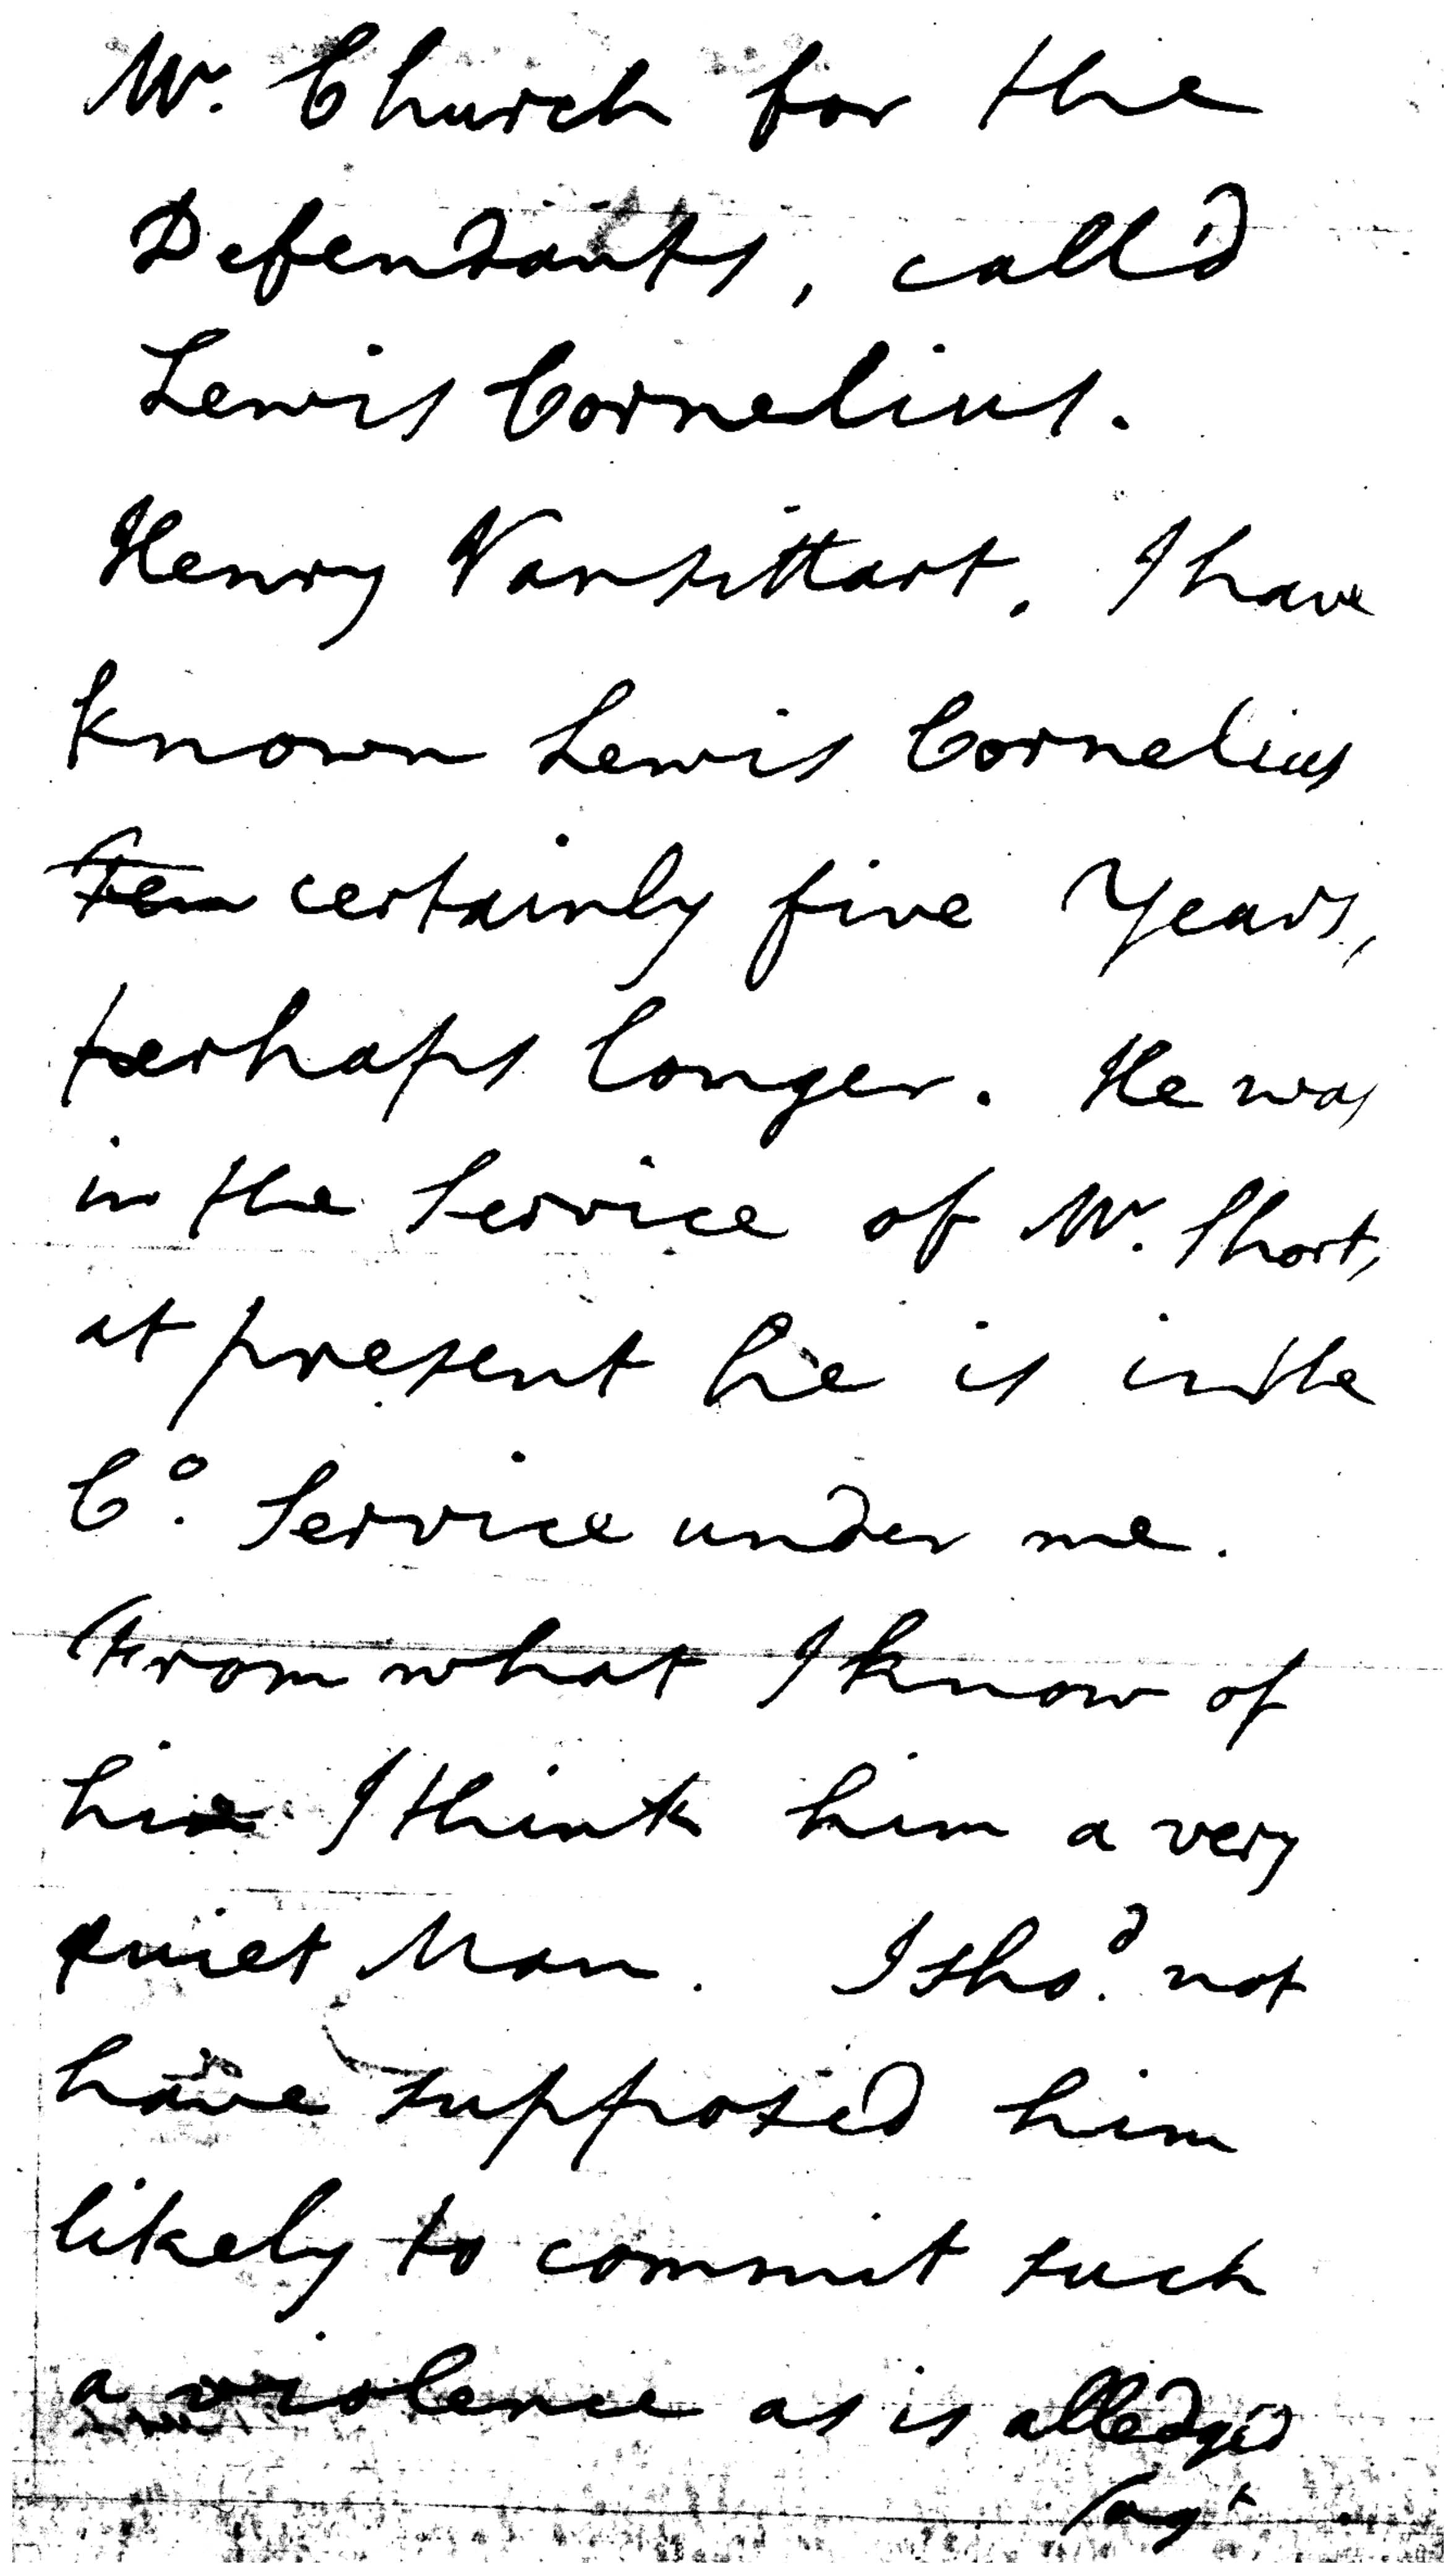 Mr. Church for the
Defendants, call'd
Lewis Cornelius.
Henry Vansittart. I have
known Lewis Cornelius
certainly five Years,
perhaps longer. He was
in the Service of Mr. Short,
at present he is in the
Co. Service under me.
From what I know of
him I think him a very
quiet Man. I shod. not
have supposed him
likely to commit such
a violence as is alledged
agt